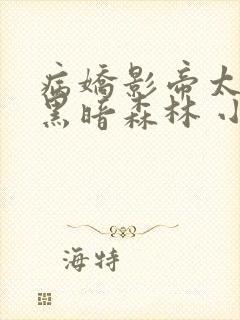 病嬌影帝太
黑暗森林 小
海特